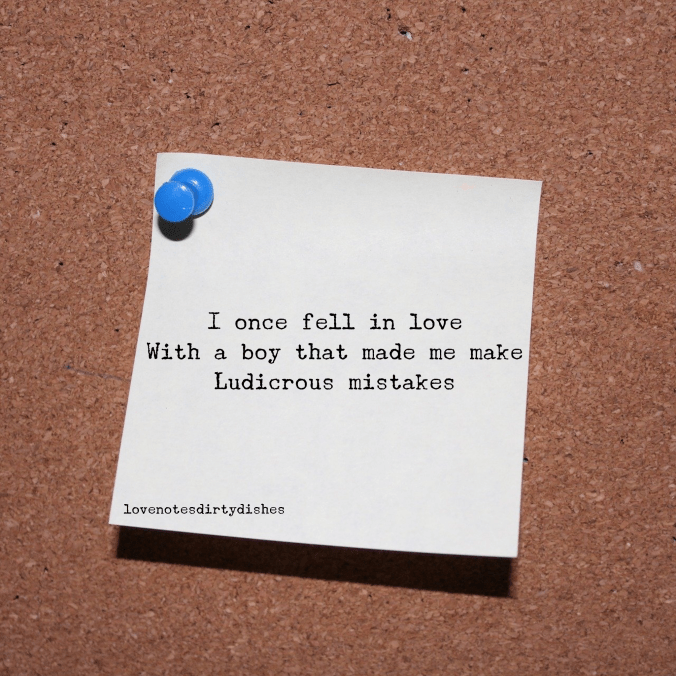 I once fell in love
With a boy that made me make
Ludicrous mistakes
lovenotesdirtydishes